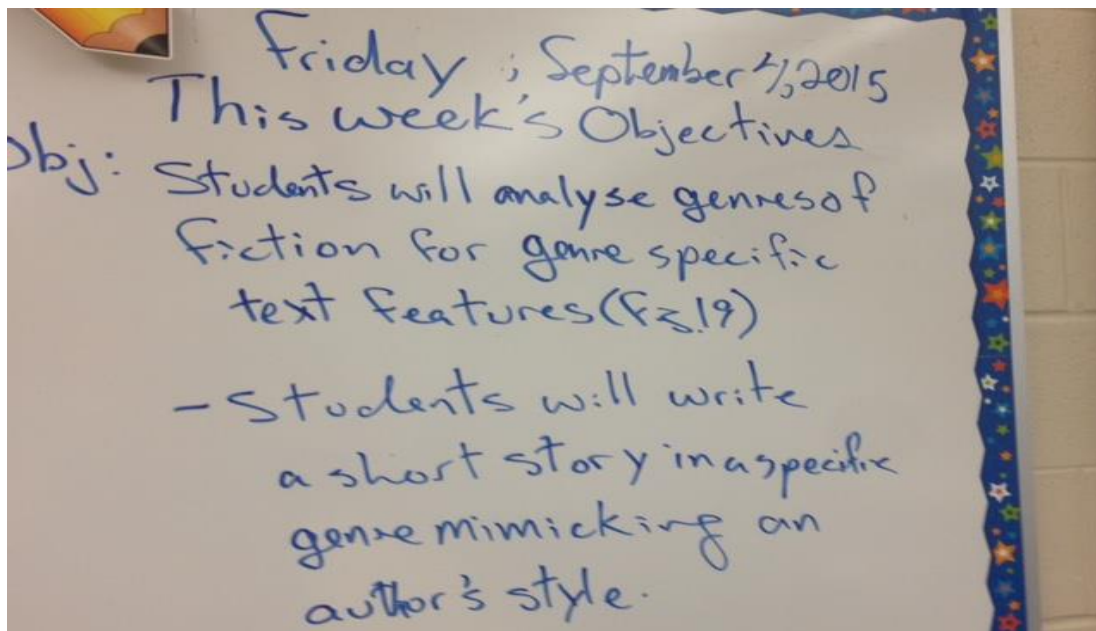 Friday, September 4, 2015
This week's Objectives
Obj: Students will analyse genres of
fiction for genre specific
text features (Fig.19)
- Students will write
a short story in a specific
genre mimicking an
author's style.